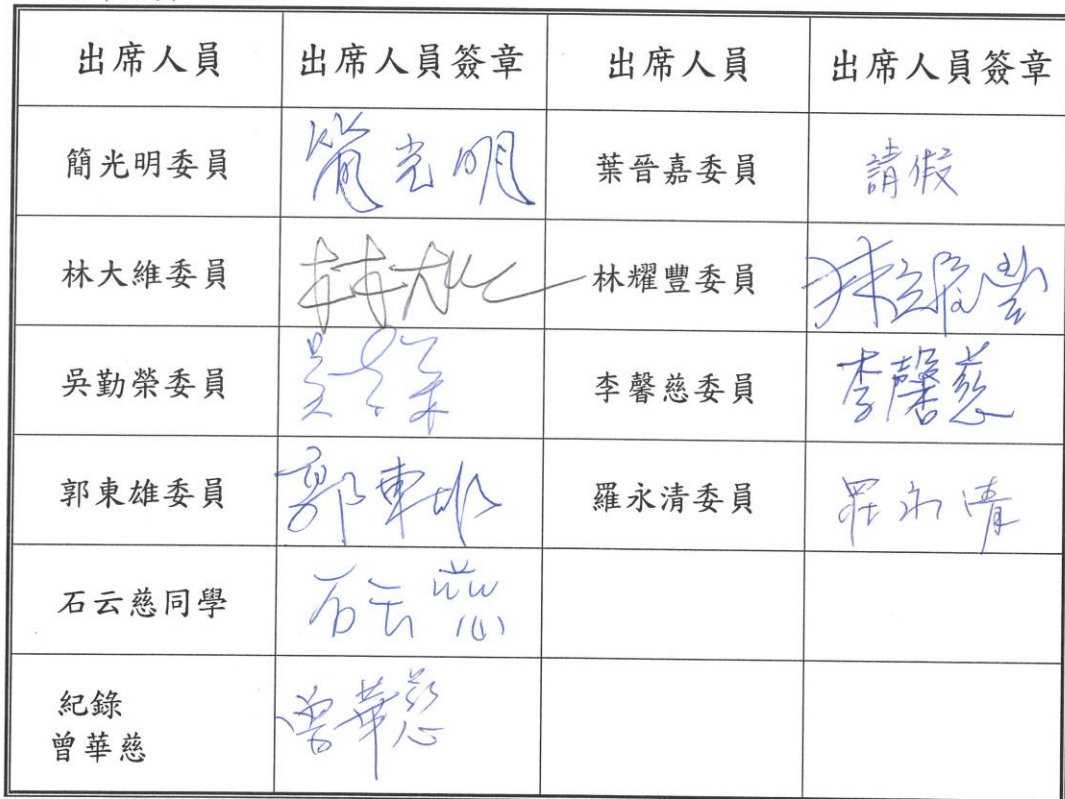 出席人員 出席人員簽章 出席人員 出席人員簽章
簡光明委員 簡光明 葉晉嘉委員 請假
林大維委員 林大維 林耀豐委員 林耀豐
吳勤榮委員 李馨慈委員 李馨慈
郭東雄委員 郭東雄 羅永清委員 羅永清
石云慈同學 石云慈
紀錄
曾華慈 曾華慈